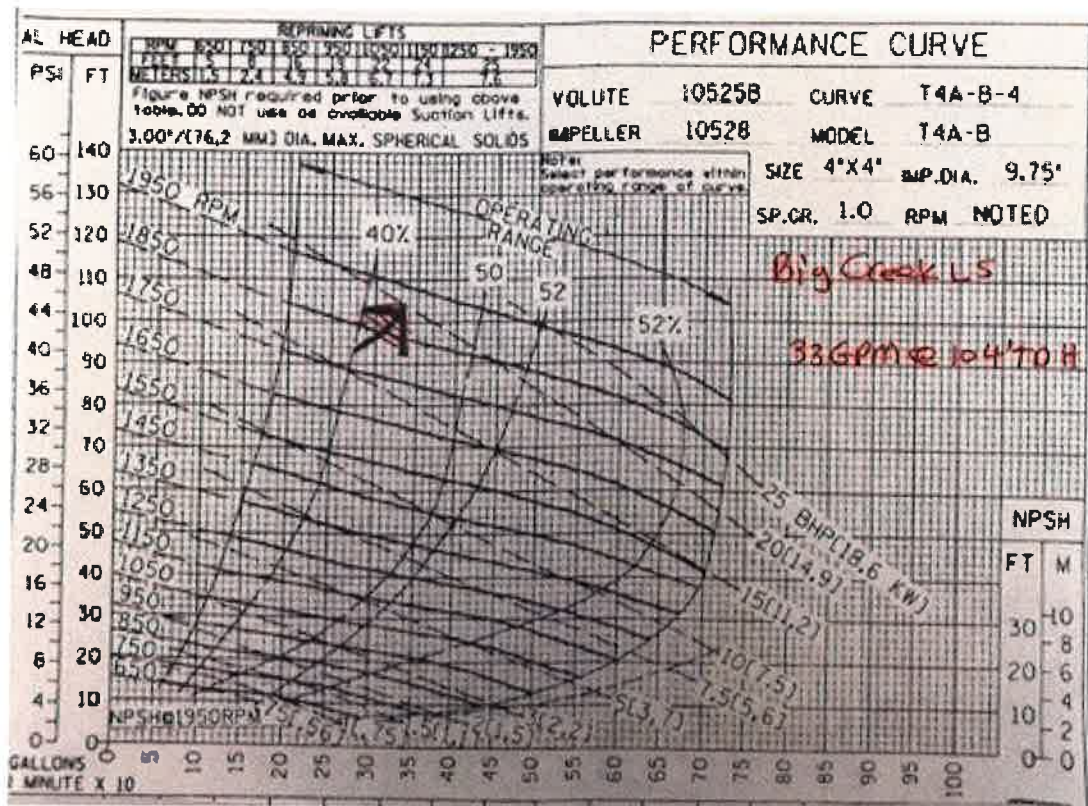 AL HEAD
PSI FT
REPRIMING LIFTS
RPM 650 750 850 950 1050 1150 1250 - 1950
FEET 5 8 16 19 22 24 25
METERS 1.5 2.4 4.9 5.8 6.7 7.3 7.6
Figure NPSH required prior to using above
table. DO NOT use as available Suction Lifts.
3.00"/(76,2 MM) DIA. MAX. SPHERICAL SOLIDS
PERFORMANCE CURVE
VOLUTE 10525B CURVE T4A-B-4
IMPELLER 10528 MODEL T4A-B
SIZE 4"X4" IMP.DIA. 9.75"
SP.GR. 1.0 RPM NOTED
Note:
Select performance within
operating range of curve.
Big Creek LS
@ 104' TDH
60 56 52 48 44 40 36 32 28 24 20 16 12 8 4 0
140 130 120 110 100 90 80 70 60 50 40 30 20 10 0
1950 RPM
1850
1750
1650
1550
1450
1350
1250
1150
1050
950
850
750
650
OPERATING
RANGE
40%
50
52
52%
25 BHP(18,6 KW)
20(14,9)
15(11,2)
10(7,5)
7.5(5,6)
5(3,7)
3(2,2)
NPSH@1950RPM
NPSH
FT M
30 20 10 0
10 8 6 4 2 0
0 5 10 15 20 25 30 35 40 45 50 55 60 65 70 75 80 85 90 95 100
GALLONS
MINUTE X 10